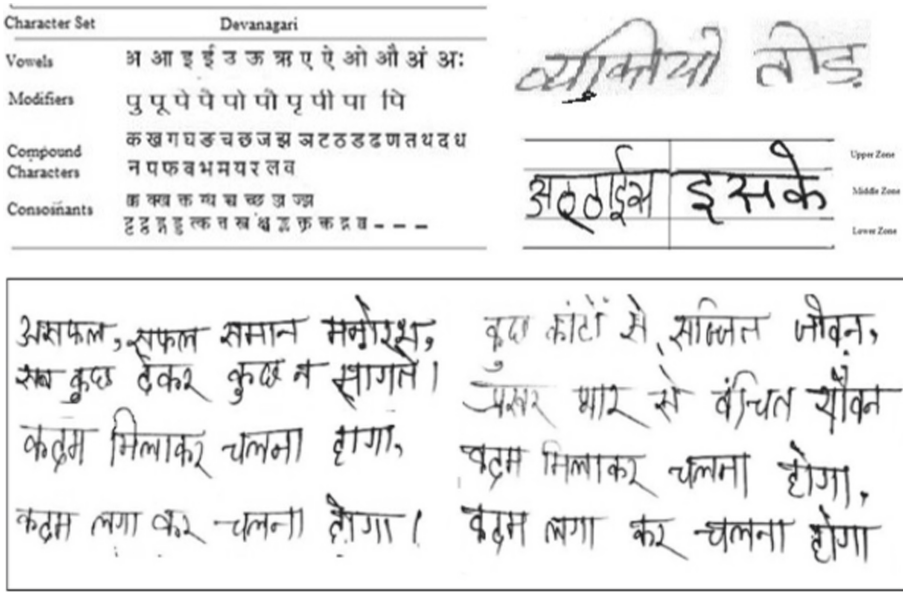 Character Set Devanagari
Vowels अ आ इ ई उ ऊ ऋ ए ऐ ओ औ अं अः
Modifiers पु पू पे पै पो पौ पृ पी पा पि
Compound Characters क ख ग घ ङ च छ ज झ ञ ट ठ ड ढ ण त थ द ध
न प फ ब भ म य र ल व
Consoinants
तोड़
Upper Zone
अठ्ठाईस इसके Middle Zone
Lower Zone
असफल, सफल समान मनोरथ,
सब कुछ देकर कुछ न मागते।
कदम मिलाकर चलना होगा,
कदम लगा कर चलना होगा।
कुछ कांटों से सज्जित जीवन,
प्रखर प्यार से वंचित यौवन
कदम मिलाकर चलना होगा,
कदम लगा कर चलना होगा